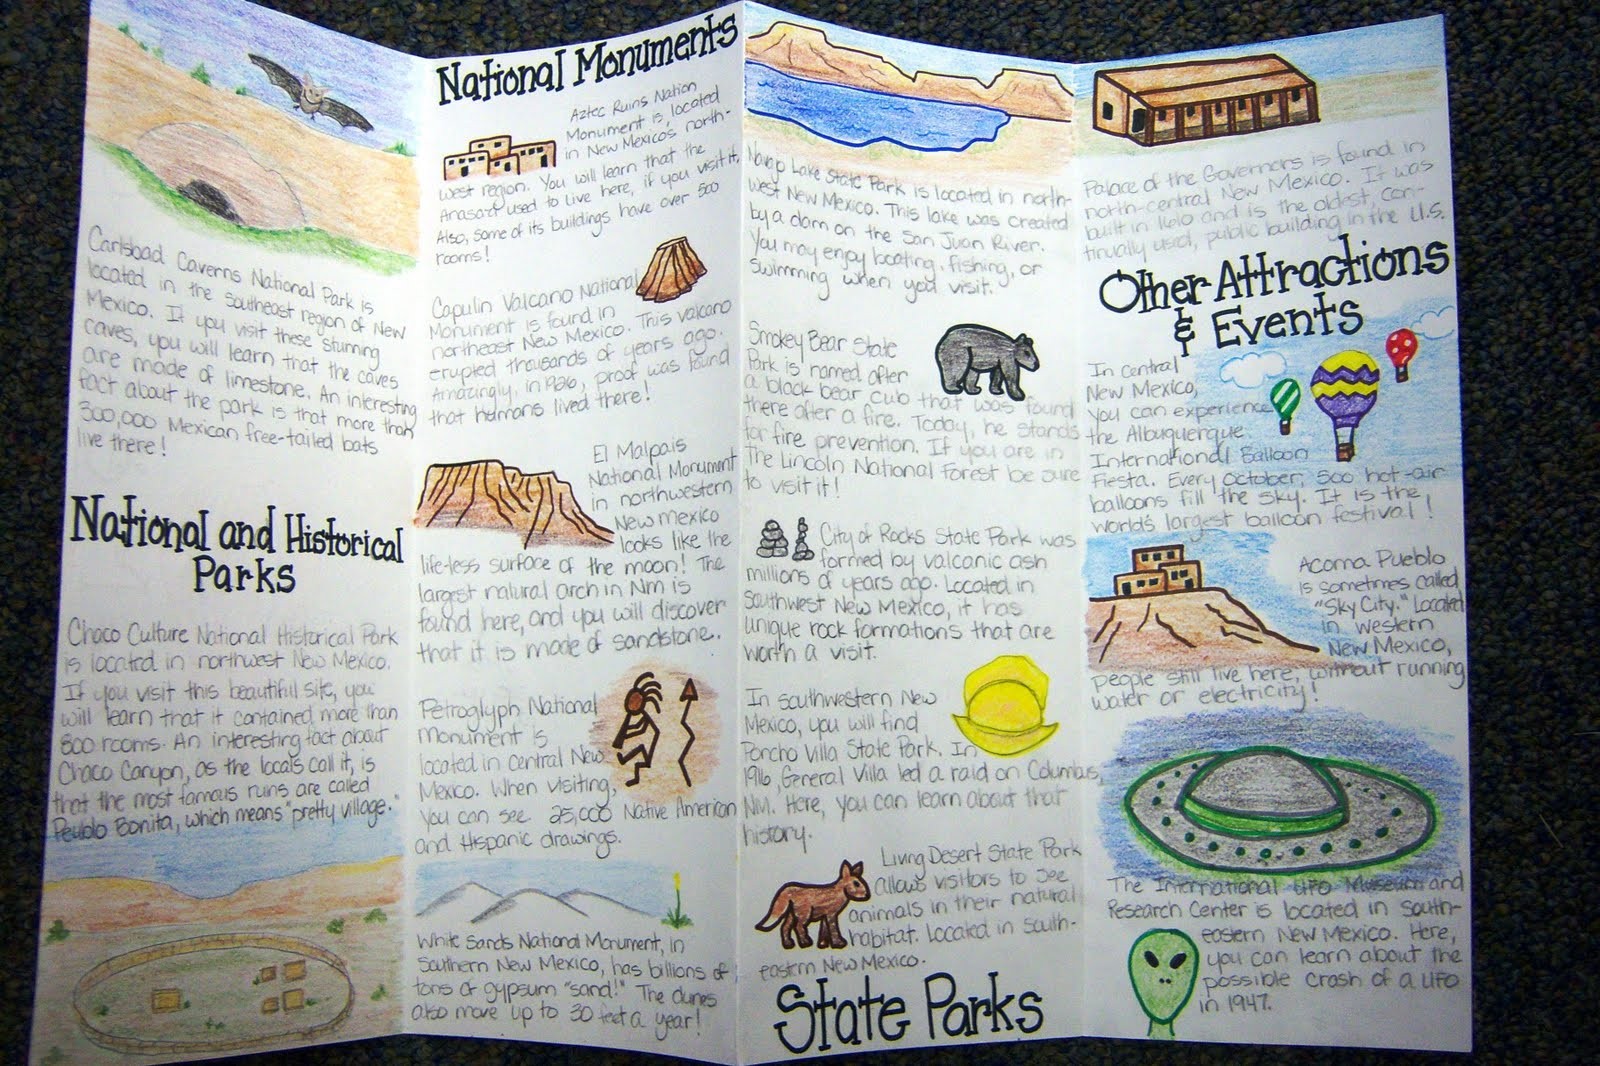 Carlsbad Caverns National Park is
located in the southeast region of New
Mexico. If you visit these stunning
caves, you will learn that the caves
are made of limestone. An interesting
fact about the park is that more than
300,000 Mexican free-tailed bats
live there!
National and Historical
Parks
Chaco Culture National Historical Park
is located in northwest New Mexico.
If you visit this beautiful site, you
will learn that it contained more than
800 rooms. An interesting fact about
Chaco Canyon, as the locals call it, is
that the most famous ruins are called
Peublo Bonita, which means "pretty village."
National Monuments
Aztec Ruins Nation
Monument is, located
in New Mexico's north-
west region. You will learn that the
Anasazi used to live here, if you visit it.
Also, some of its buildings have over 500
rooms!
Capulin Valcano National
Monument is found in
northeast New Mexico. This valcano
erupted thousands of years ago.
Amazingly, in 1926, proof was found
that humans lived there!
El Malpais
National Monument
in northwestern
New Mexico
looks like the
life-less surface of the moon! The
largest natural arch in NM is
found here, and you will discover
that it is made of sandstone.
Petroglyph National
Monument is
located in central New
Mexico. When visiting,
you can see 25,000 Native American
and Hispanic drawings.
White Sands National Monument, in
Southern New Mexico, has billions of
tons of gypsum "sand!" The dunes
also move up to 30 feet a year!
Navajo Lake State Park is located in north-
west New Mexico. This lake was created
by a dam on the San Juan River.
You may enjoy boating, fishing, or
swimming when you visit.
Smokey Bear State
Park is named after
a black bear cub that was found
there after a fire. Today, he stands
for fire prevention. If you are in
The Lincoln National Forest be sure
to visit it!
City of Rocks State Park was
formed by valcanic ash
millions of years ago. Located in
southwest New Mexico, it has
unique rock formations that are
worth a visit.
In southwestern New
Mexico, you will find
Poncho Villa State Park. In
1916, General Villa led a raid on Columbus,
NM. Here, you can learn about that
history.
Living Desert State Park
allows visitors to see
animals in their natural
habitat. Located in south-
eastern New Mexico.
State Parks
Palace of the Governors is found in
north-central New Mexico. It was
built in 1610 and is the oldest, con-
tinually used, public building in the U.S.
Other Attractions
& Events
In central
New Mexico,
you can experience
the Albuquerque
International Balloon
Fiesta. Every October, 500 hot-air
balloons fill the sky. It is the
world's largest balloon festival!
Acoma Pueblo
is sometimes called
"Sky City." Located
in western
New Mexico,
people still live here, without running
water or electricity!
The International UFO Museum and
Research Center is located in south-
eastern New Mexico. Here,
you can learn about the
possible crash of a UFO
in 1947.